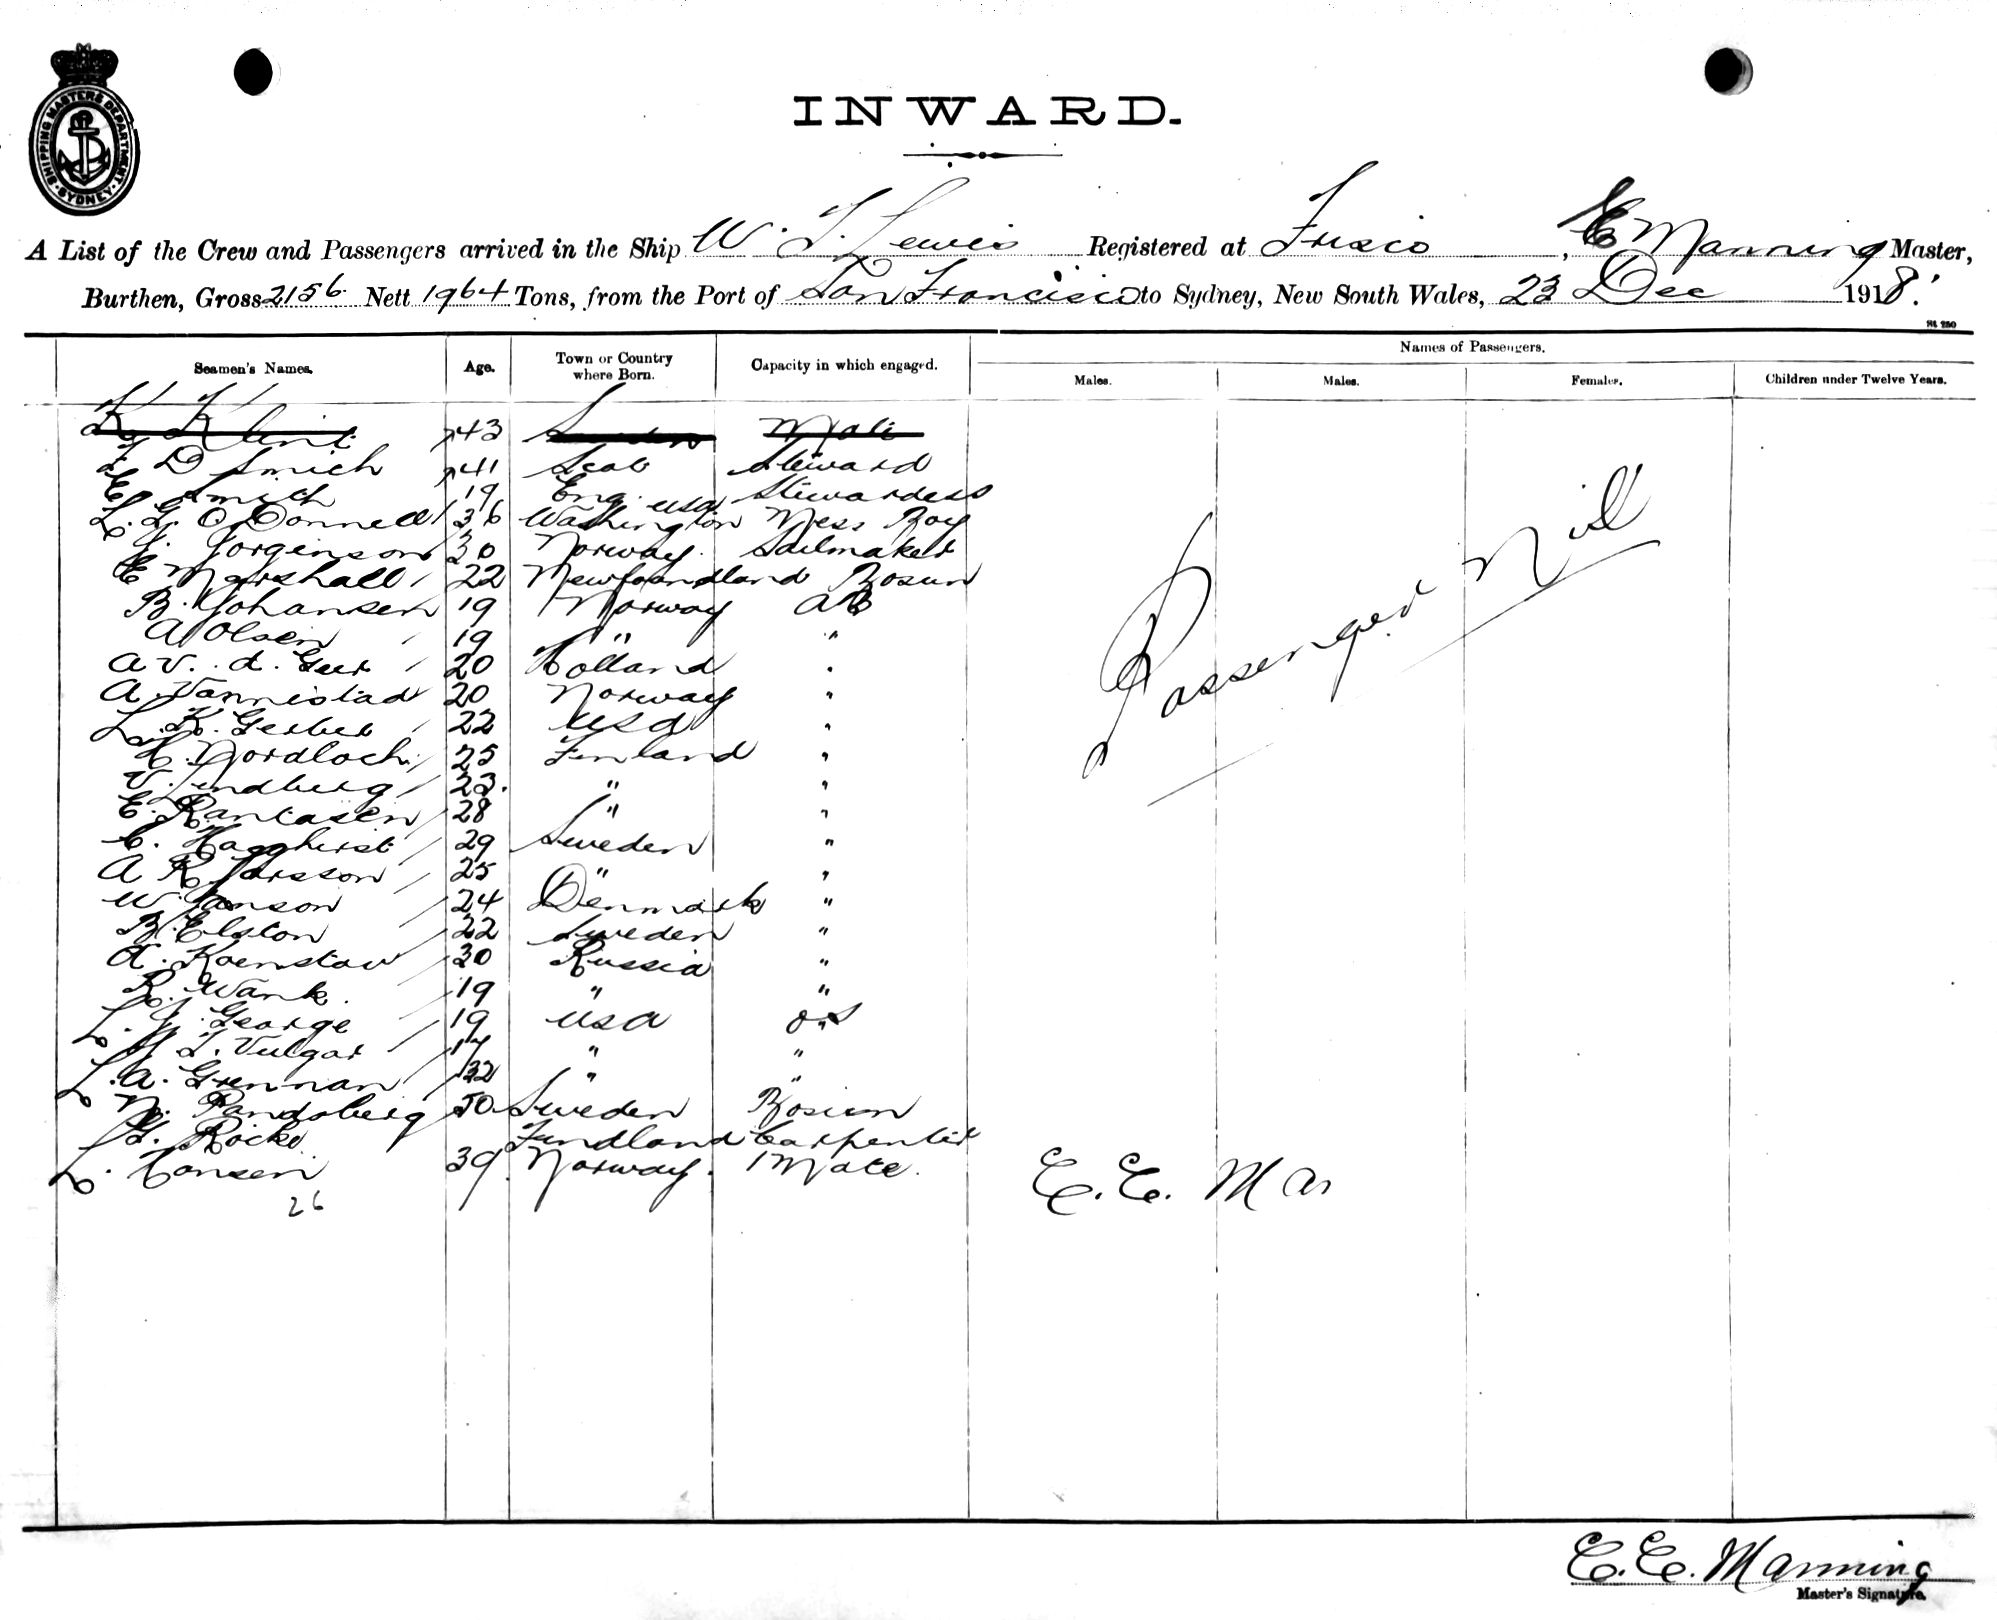 SHIPPING MASTERS DEPARTMENT
SYDNEY
INWARD.
A List of the Crew and Passengers arrived in the Ship W. J. Lewis Registered at Frisco, E Manning Master,
Burthen, Gross 2156 Nett 1964 Tons, from the Port of San Francisco to Sydney, New South Wales, 23 Dec 1918.
Seamen's Names. Age. Town or Country where Born. Capacity in which engaged. Names of Passengers.
Males. Males. Females. Children under Twelve Years.
K Klint 43 Sweden Mate
D Smith 41 Scot Steward
E Smith 19 Eng. Stewardess
L. G. O Donnell 36 Washington USA Mess Boy
J. Jorgenson 30 Norway. Sailmaker
E Marshall 22 Newfoundland Bosun
B. Johansen 19 Norway AB
A Olsen 19 " "
A v. d. Geer 20 Holland "
A. Vannistad 20 Norway "
L. K. Gerber 22 USA "
H. Nordloch 25 Finland "
V. Lindberg 23. " "
E. Rantasen 28 " "
C. Hagghirst 29 Sweden "
A R Larsson 25 " "
W. Janson 24 Denmark "
B. Elston 22 Sweden "
A. Koenstow 30 Russia "
R. Wank. 19 " "
L. J. George 19 USA OS
L. Vulgar 17 " "
L. A. Grennan 32 " "
N. Randsberg 50 Sweden Bosum
Rocke Findland Carpenter
L. Hansen 39 Norway. 1 Mate.
26
Passenger Nill
E. E. Man
E. E. Manning
Master's Signature.